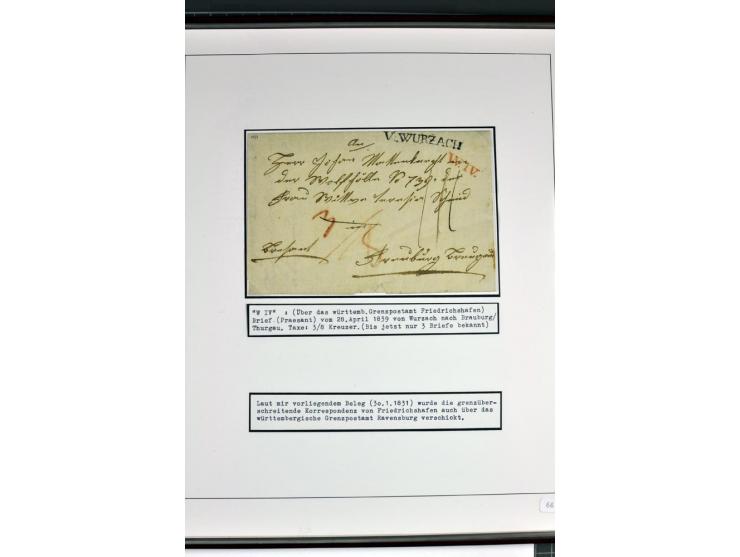 V. WURZACH
W.IV.
An
Herr Johan
der
Frau Wittwe
in
Freuburg Breisgau
"W IV" : (Über das württemb.Grenzpostamt Friedrichshafen)
Brief (Praesant) vom 28.April 1839 von Wurzach nach Brauburg/
Thurgau. Taxe: 3/8 Kreuzer.(Bis jetzt nur 3 Briefe bekannt)
Laut mir vorliegendem Beleg (3o.1.1831) wurde die grenzüber-
schreitende Korrespondenz von Friedrichshafen auch über das
württembergische Grenzpostamt Ravensburg verschickt.
66